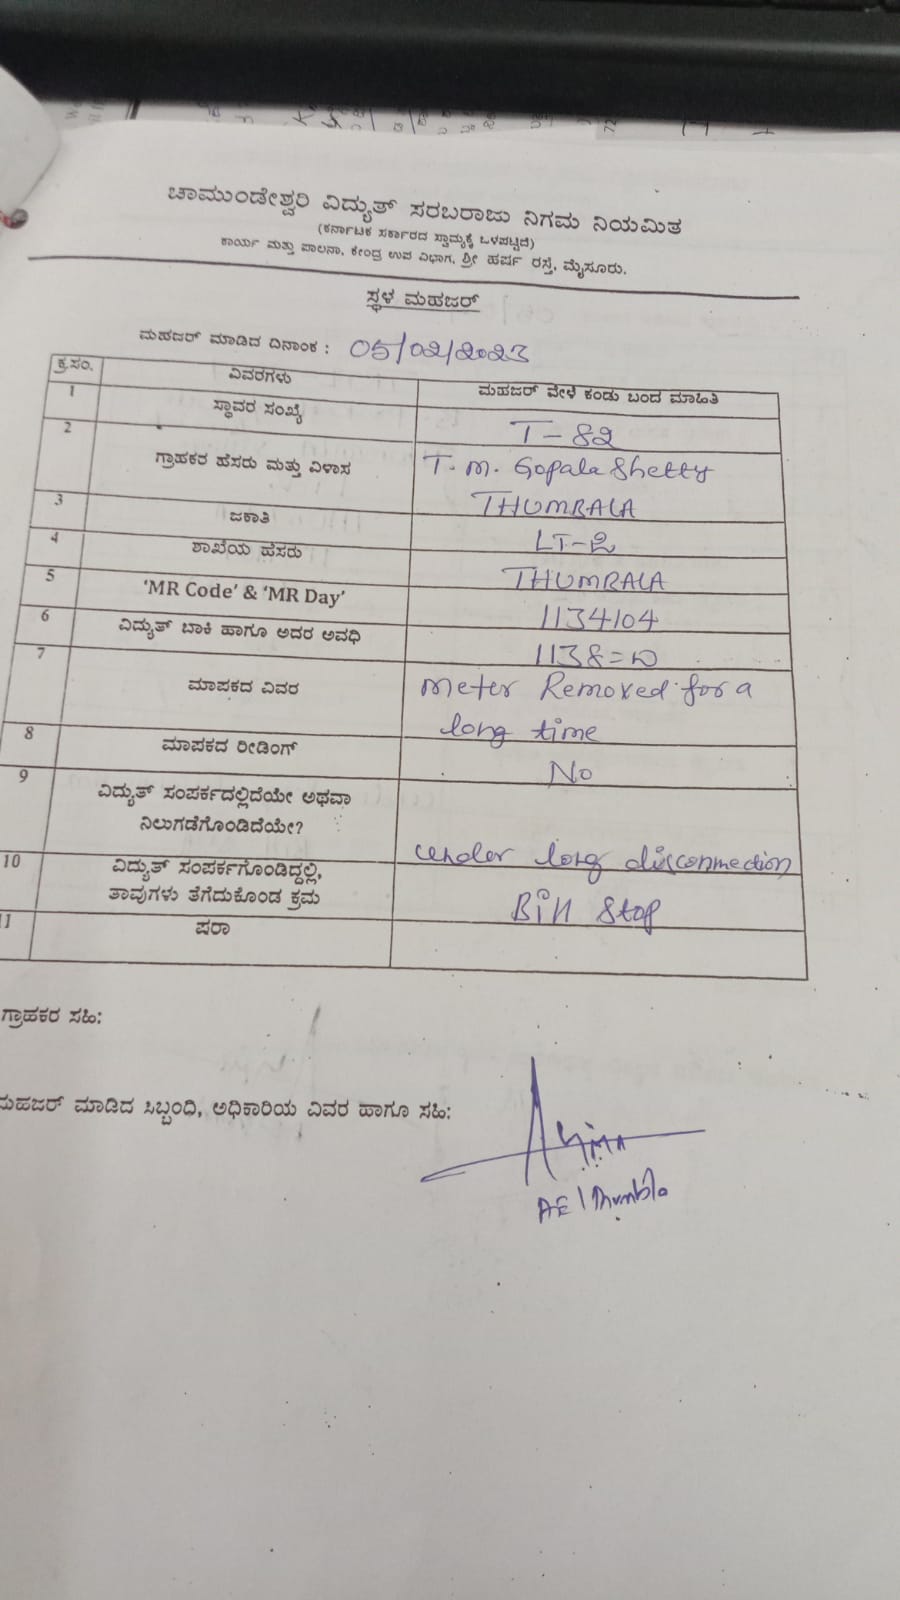 ಚಾಮುಂಡೇಶ್ವರಿ ವಿದ್ಯುತ್ ಸರಬರಾಜು ನಿಗಮ ನಿಯಮಿತ
(ಕರ್ನಾಟಕ ಸರ್ಕಾರದ ಸ್ವಾಮ್ಯಕ್ಕೆ ಒಳಪಟ್ಟಿದೆ)
ಕಾರ್ಯ ಮತ್ತು ಪಾಲನಾ, ಕೇಂದ್ರ ಉಪ ವಿಭಾಗ, ಶ್ರೀ ಹರ್ಷ ರಸ್ತೆ, ಮೈಸೂರು.
ಸ್ಥಳ ಮಹಜರ್
ಮಹಜರ್ ಮಾಡಿದ ದಿನಾಂಕ : 05/02/2023
ಕ್ರ.ಸಂ. ವಿವರಗಳು ಮಹಜರ್ ವೇಳೆ ಕಂಡು ಬಂದ ಮಾಹಿತಿ
1 ಸ್ಥಾವರ ಸಂಖ್ಯೆ T-82
2 ಗ್ರಾಹಕರ ಹೆಸರು ಮತ್ತು ವಿಳಾಸ T. M. Gopala Shetty
THUMBALA
3 ಜಕಾತಿ LT-
4 ಶಾಖೆಯ ಹೆಸರು THUMBALA
5 'MR Code' & 'MR Day' 1134104
6 ವಿದ್ಯುತ್ ಬಾಕಿ ಹಾಗೂ ಅದರ ಅವಧಿ 1138=00
7 ಮಾಪಕದ ವಿವರ meter Removed for a
long time
8 ಮಾಪಕದ ರೀಡಿಂಗ್ No
9 ವಿದ್ಯುತ್ ಸಂಪರ್ಕದಲ್ಲಿದೆಯೇ ಅಥವಾ
ನಿಲುಗಡೆಗೊಂಡಿದೆಯೇ? under long disconnection
10 ವಿದ್ಯುತ್ ಸಂಪರ್ಕಗೊಂಡಿದ್ದಲ್ಲಿ,
ತಾವುಗಳು ತೆಗೆದುಕೊಂಡ ಕ್ರಮ Bill Stop
11 ಷರಾ
ಗ್ರಾಹಕರ ಸಹಿ:
ಮಹಜರ್ ಮಾಡಿದ ಸಿಬ್ಬಂದಿ, ಅಧಿಕಾರಿಯ ವಿವರ ಹಾಗೂ ಸಹಿ:
AE / Thumbla